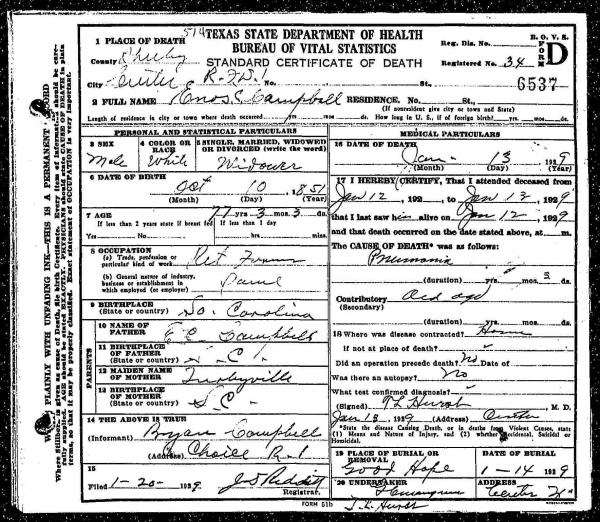 514 TEXAS STATE DEPARTMENT OF HEALTH
BUREAU OF VITAL STATISTICS
STANDARD CERTIFICATE OF DEATH
B. O. V. S.
FORM D
Reg. Dis. No.
Registered No. 34
6537
1 PLACE OF DEATH
County Shelby
City Center R-No. 1 No. St.,
2 FULL NAME Enos S. Campbell RESIDENCE. No. St.,
(If nonresident give city or town and State)
Length of residence in city or town where death occurred yrs. mos. ds. How long in U. S., if of foreign birth? yrs. mos. ds.
PERSONAL AND STATISTICAL PARTICULARS
3 SEX
Male
4 COLOR OR RACE
White
5 SINGLE, MARRIED, WIDOWED OR DIVORCED (write the word)
Widower
6 DATE OF BIRTH
Oct 10, 1851
(Month) (Day) (Year)
7 AGE 77 yrs. 3 mos. 3 ds.
If less than 2 years state if breast fed If less than 1 day
Yes No hrs. mins.
8 OCCUPATION
(a) Trade, profession or particular kind of work Ret Farmer
(b) General nature of industry, business or establishment in which employed (or employer) Same
9 BIRTHPLACE
(State or country) So. Carolina
PARENTS
10 NAME OF FATHER Campbell
11 BIRTHPLACE OF FATHER
(State or country) S. C.
12 MAIDEN NAME OF MOTHER Turbyville
13 BIRTHPLACE OF MOTHER
(State or country) S. C.
14 THE ABOVE IS TRUE
(Informant) Bryan Campbell
(Address) Choice R-1
15
Filed 1-20- 1929 J. D. Redditt
Registrar.
MEDICAL PARTICULARS
16 DATE OF DEATH
Jan- 13 1929
(Month) (Day) (Year)
17 I HEREBY CERTIFY, That I attended deceased from
Jan 12, 192 , to Jan 13, 1929
that I last saw him alive on Jan 12, 1929
and that death occurred on the date stated above, at m.
The CAUSE OF DEATH* was as follows:
Pneumonia
(duration) yrs. mos. 3 ds.
Contributory Old age
(Secondary)
(duration) yrs. mos. ds.
18 Where was disease contracted Home
if not at place of death?
Did an operation precede death? No Date of
Was there an autopsy? No
What test confirmed diagnosis?
(Signed) T L Hurst M. D.
Jan 13 1929 (Address) Center
*State the disease Causing Death, or in deaths from Violent Causes, state (1) Means and Nature of Injury, and (2) whether Accidental, Suicidal or Homicidal.
19 PLACE OF BURIAL OR REMOVAL
Good Hope
DATE OF BURIAL
1-14 1929
20 UNDERTAKER
ADDRESS
Center Tx
T. L. Hurst
FORM 51b